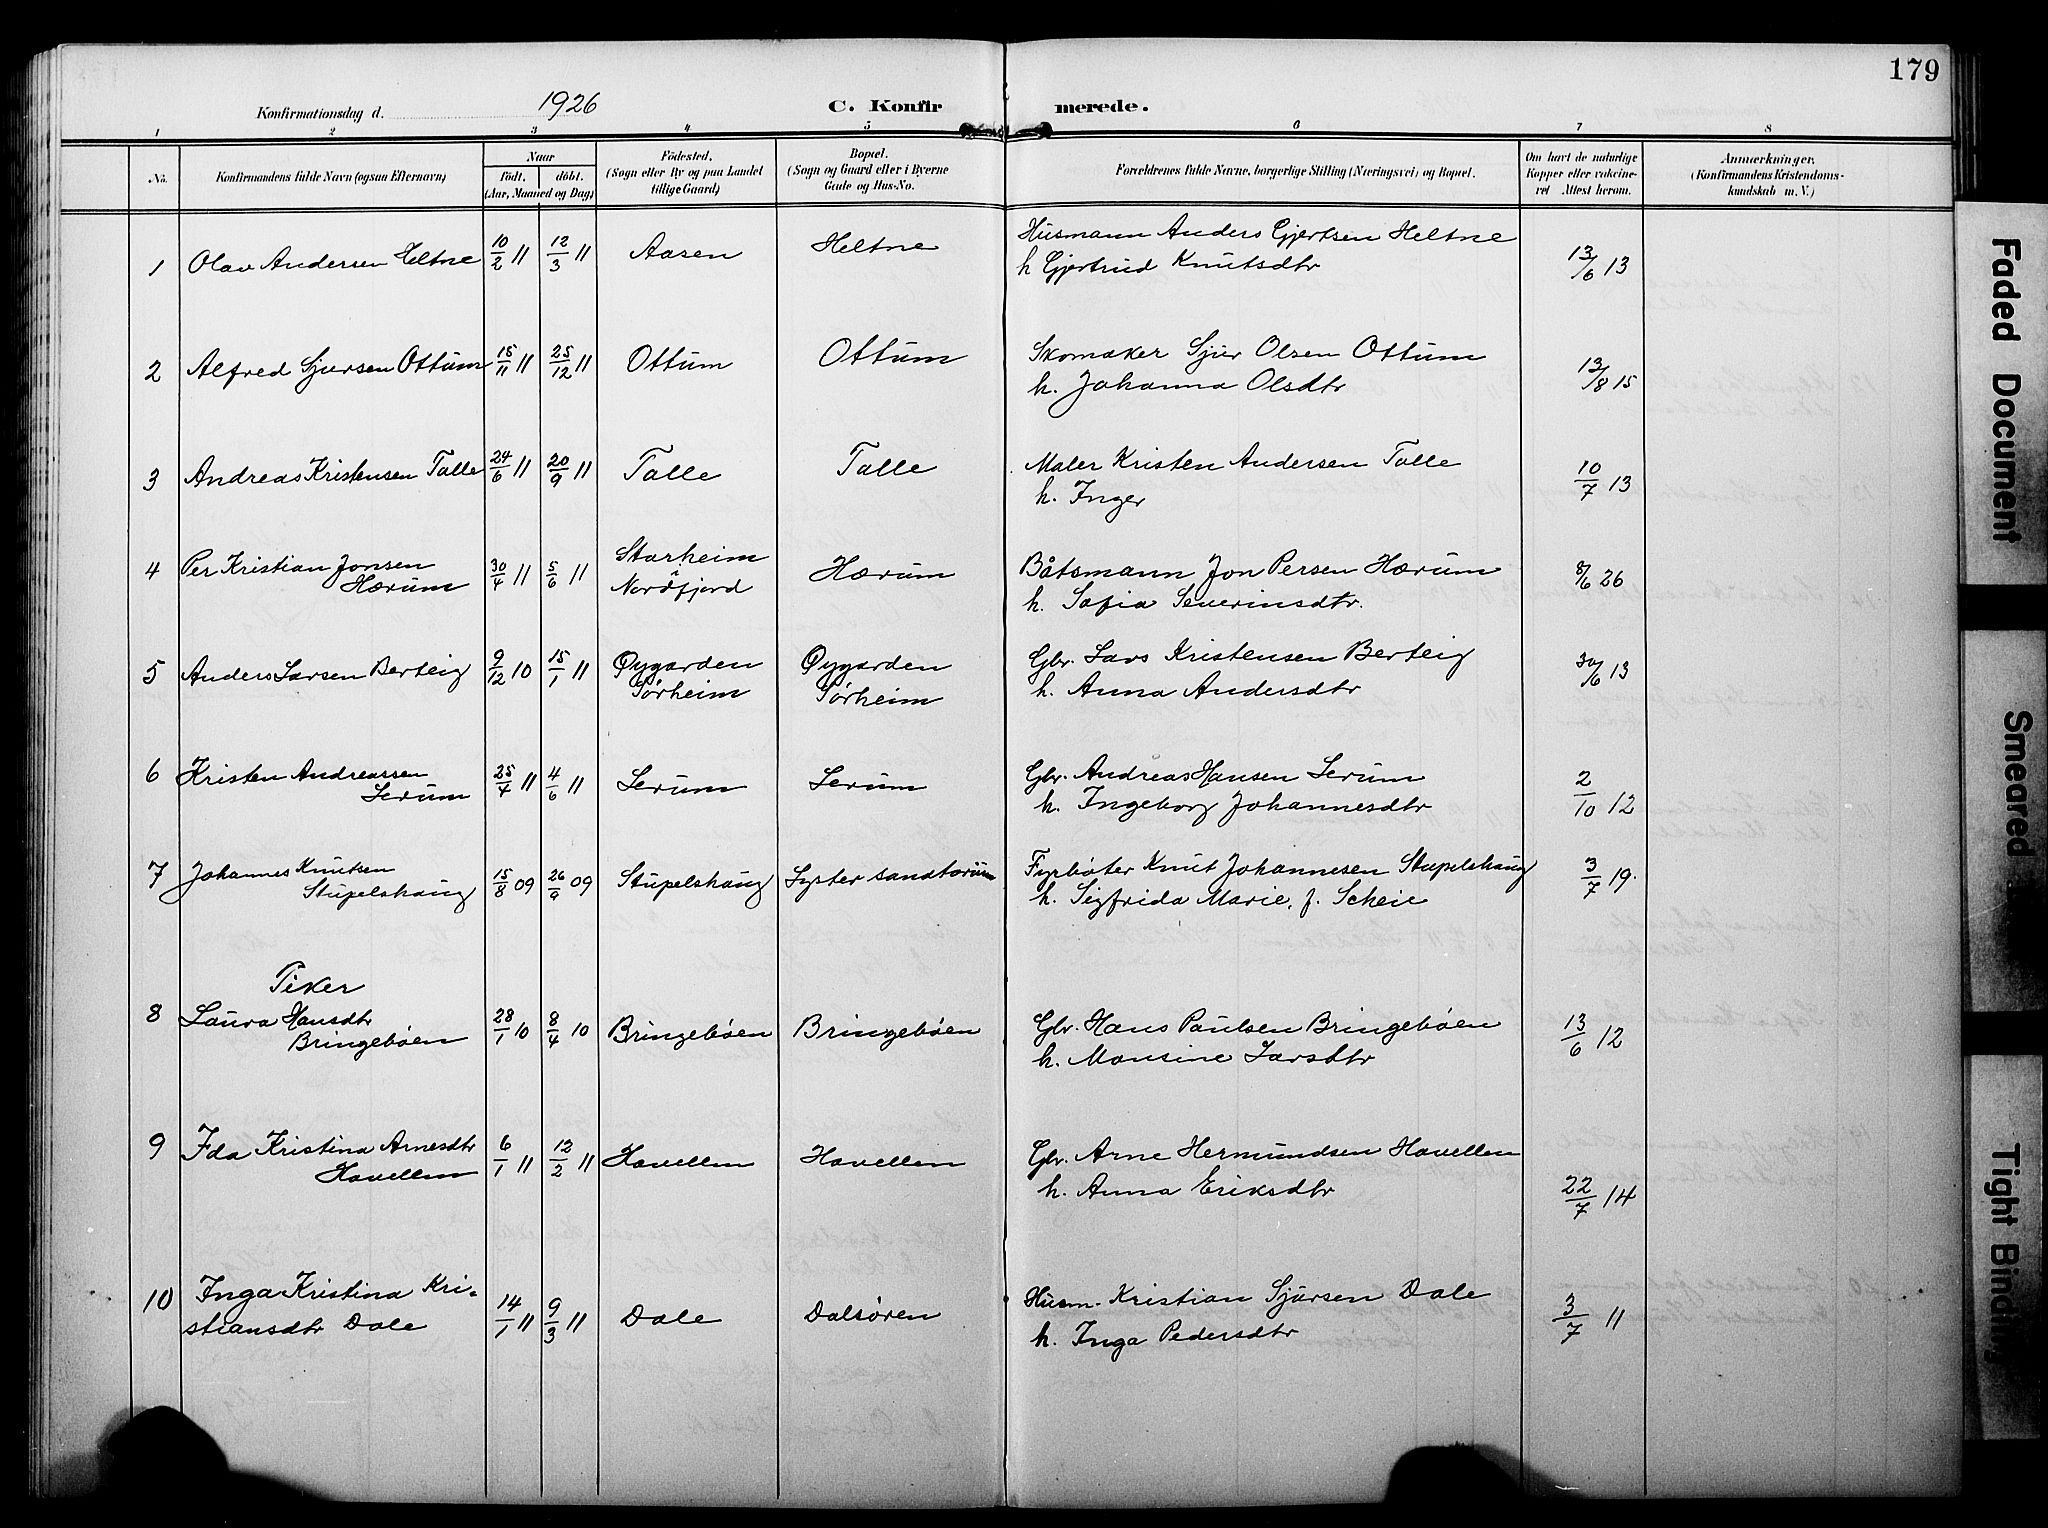 179
Konfirmationsdag d. 1926 C. Konfirmerede.
1 2 3 4 5 6 7 8
No. Konfirmandens fulde Navn (ogsaa Efternavn) Naar Födt. döbt. (Aar, Maaned og Dag) Födested. (Sogn eller By og paa Landet tillige Gaard) Bopæl. (Sogn og Gaard eller i Byerne Gade og Hus-No. Forældrenes fulde Navne, borgerlige Stilling (Næringsvei) og Bopæl. Om havt de naturlige Kopper eller vakcineret Attest herom. Anmærkninger. (Konfirmandens Kristendomskundskab m. V.)
1 Olav Andersen Heltne 10/2 11 12/3 11 Aasen Heltne Husmann Anders Gjertsen Heltne 13/6 13
h Gjertrud Knutsdtr
2 Alfred Sjursen Ottum 15/11 11 25/12 11 Ottum Ottum Skomaker Sjur Olsen Ottum 13/8 15
h. Johanna Olsdtr
3 Andreas Kristensen Talle 24/6 11 20/9 11 Talle Talle Maler Kristen Andersen Talle 10/7 13
h. Inger
4 Per Kristian Jonsen 30/4 11 5/6 11 Starheim Hærum Båtsmann Jon Persen Hærum 8/6 26
Hærum Nordfjord h. Sofia Severinsdtr.
5 Anders Larsen Berteig 9/12 10 15/1 11 Øygarden Øygarden Gbr. Lars Kristensen Berteig 30/6 13
Sørheim Sørheim h. Anna Andersdtr
6 Kristen Andreassen 25/4 11 4/6 11 Lerum Lerum Gbr. Andreas Hansen Lerum 2/10 12
Lerum h. Ingeborg Johannesdtr
7 Johannes Knutsen 15/8 09 26/9 09 Stupelshaug Lyster sanatorium Fyrbøter Knut Johannesen Stupelshaug 3/7 19.
Stupelshaug h. Sigfrida Marie, f. Scheie
Piker
8 Laura Hansdtr 28/1 10 8/4 10 Bringebøen Bringebøen Gbr. Hans Paulsen Bringebøen 13/6 12
Bringebøen h. Monsine Larsdtr
9 Ida Kristina Arnesdtr 6/1 11 12/2 11 Havellen Havellen Gbr. Arne Hermundsen Havellen 22/7 14
Havellen h. Anna Eriksdtr
10 Inga Kristina Kri- 14/1 11 9/3 11 Dale Dalsøren Husm. Kristian Sjursen Dale 3/7 11
stiansdtr Dale h. Inga Pedersdtr
Faded Document
Smeared
Tight Binding